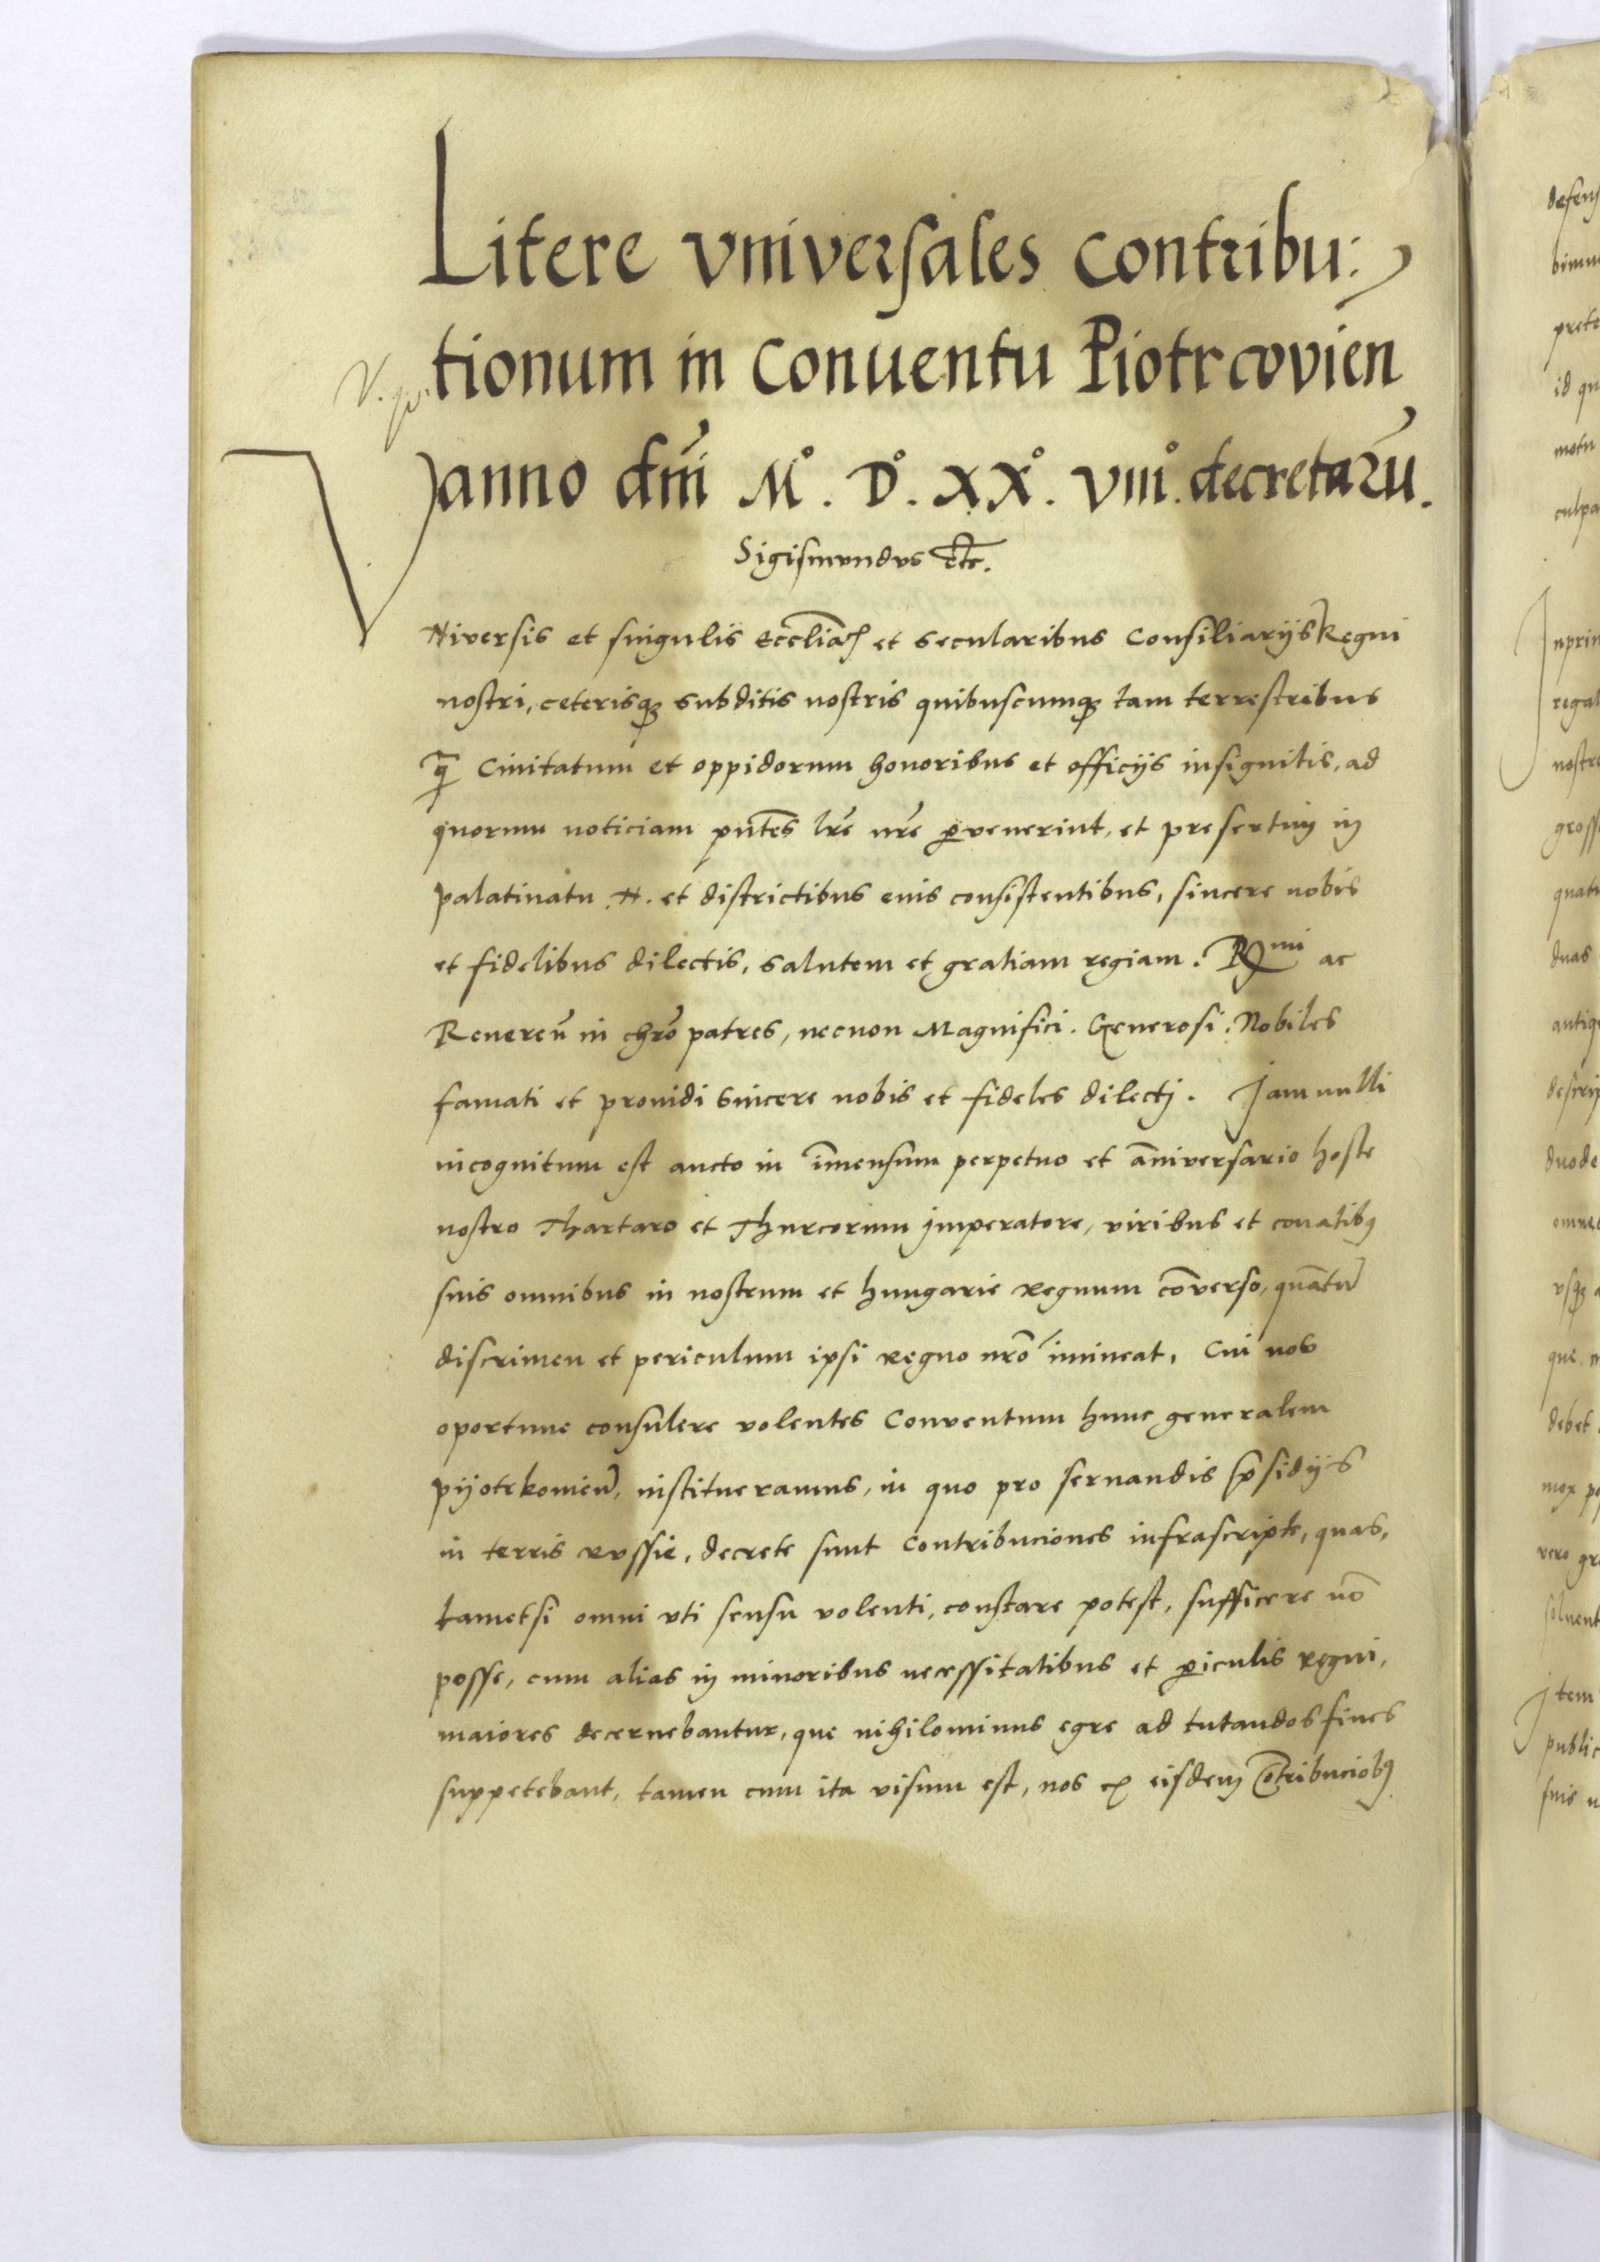 Litere vniversales contribu:
tionum in Conuentu Piotrcovien
anno dm̄i Mº. Dº. XXº. VIIIº. decretarū.
Sigismundus etc̄.
VNiversis et singulis Eccl̄ia et secularibus Consiliarijs Regni
nostri, ceterisqꝫ subditis nostris quibuscumqꝫ tam terrestribus
qꝫ̄ Civitatum et oppidorum honoribus et officijs insignitis, ad
quorum noticiam pn̄tes lr̄e nr̄e ꝑvenerint, et presertim in
palatinatu .N. et districtibus eius consistentibus, sincere nobis
et fidelibus dilectis, salutem et gratiam regiam. Rmi ac
Reveren̄ in chr̄o patres, necnon Magnifici. Generosi. Nobiles
famati et providi Sincere nobis et fideles dilecti. Jam nulli
incognitum est aucto in īmensum perpetuo et āniversario hoste
nostro Thartaro et Thurcorum imperatore, viribus et conatibꝰ
suis omnibus in nostrum et hungarie Regnum cōverso, quātū
discrimen et periculum ipsi Regno nr̄o īmineat, Cui nos
oportune consulere volentes Conventum hunc generalem
pijotrkovien̄, institueramus, in quo pro servandis p̄sidijs
in terris Russie, decrete sunt Contribuciones infrascripte, quas,
tametsi omni vti sensu volenti, constare potest, sufficere nō
posse, cum alias in minoribus necessitatibus et ꝑiculis Regni,
maiores decernebantur, que nihilominus egre ad tutandos fines
suppetebant, tamen cum ita visum est, nos ex eisdem cōtribuciobꝰ